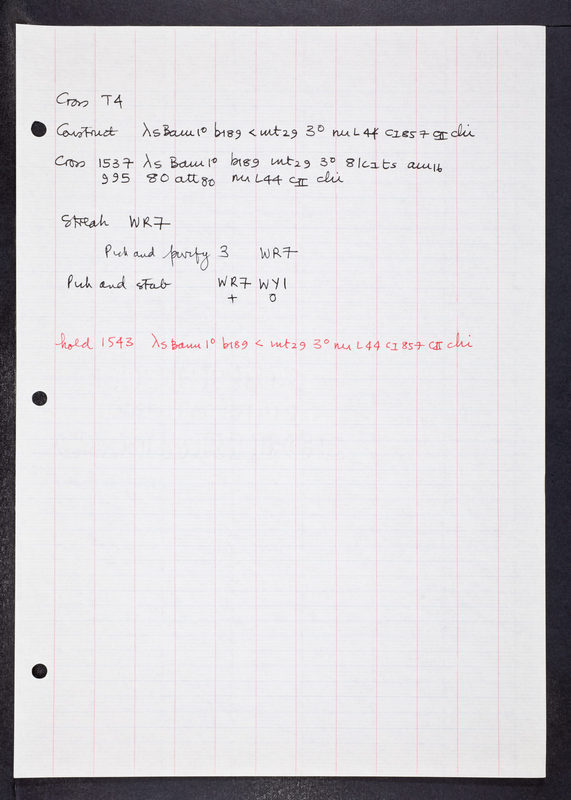 Cross T4
Construct λs Bam 1° b189 < int29 3° nin L44 cI857 cII chi
Cross 1537 λs Bam 1° b189 int29 3° 8 lc1ts am16
995 80 att80 nin L44 cII chi
Streak WR7
Pick and purify 3 WR7
Pick and stab WR7 WY1
+ 0
hold 1543 λs Bam 1° b189 < int29 3° nin L44 cI857 cII chi